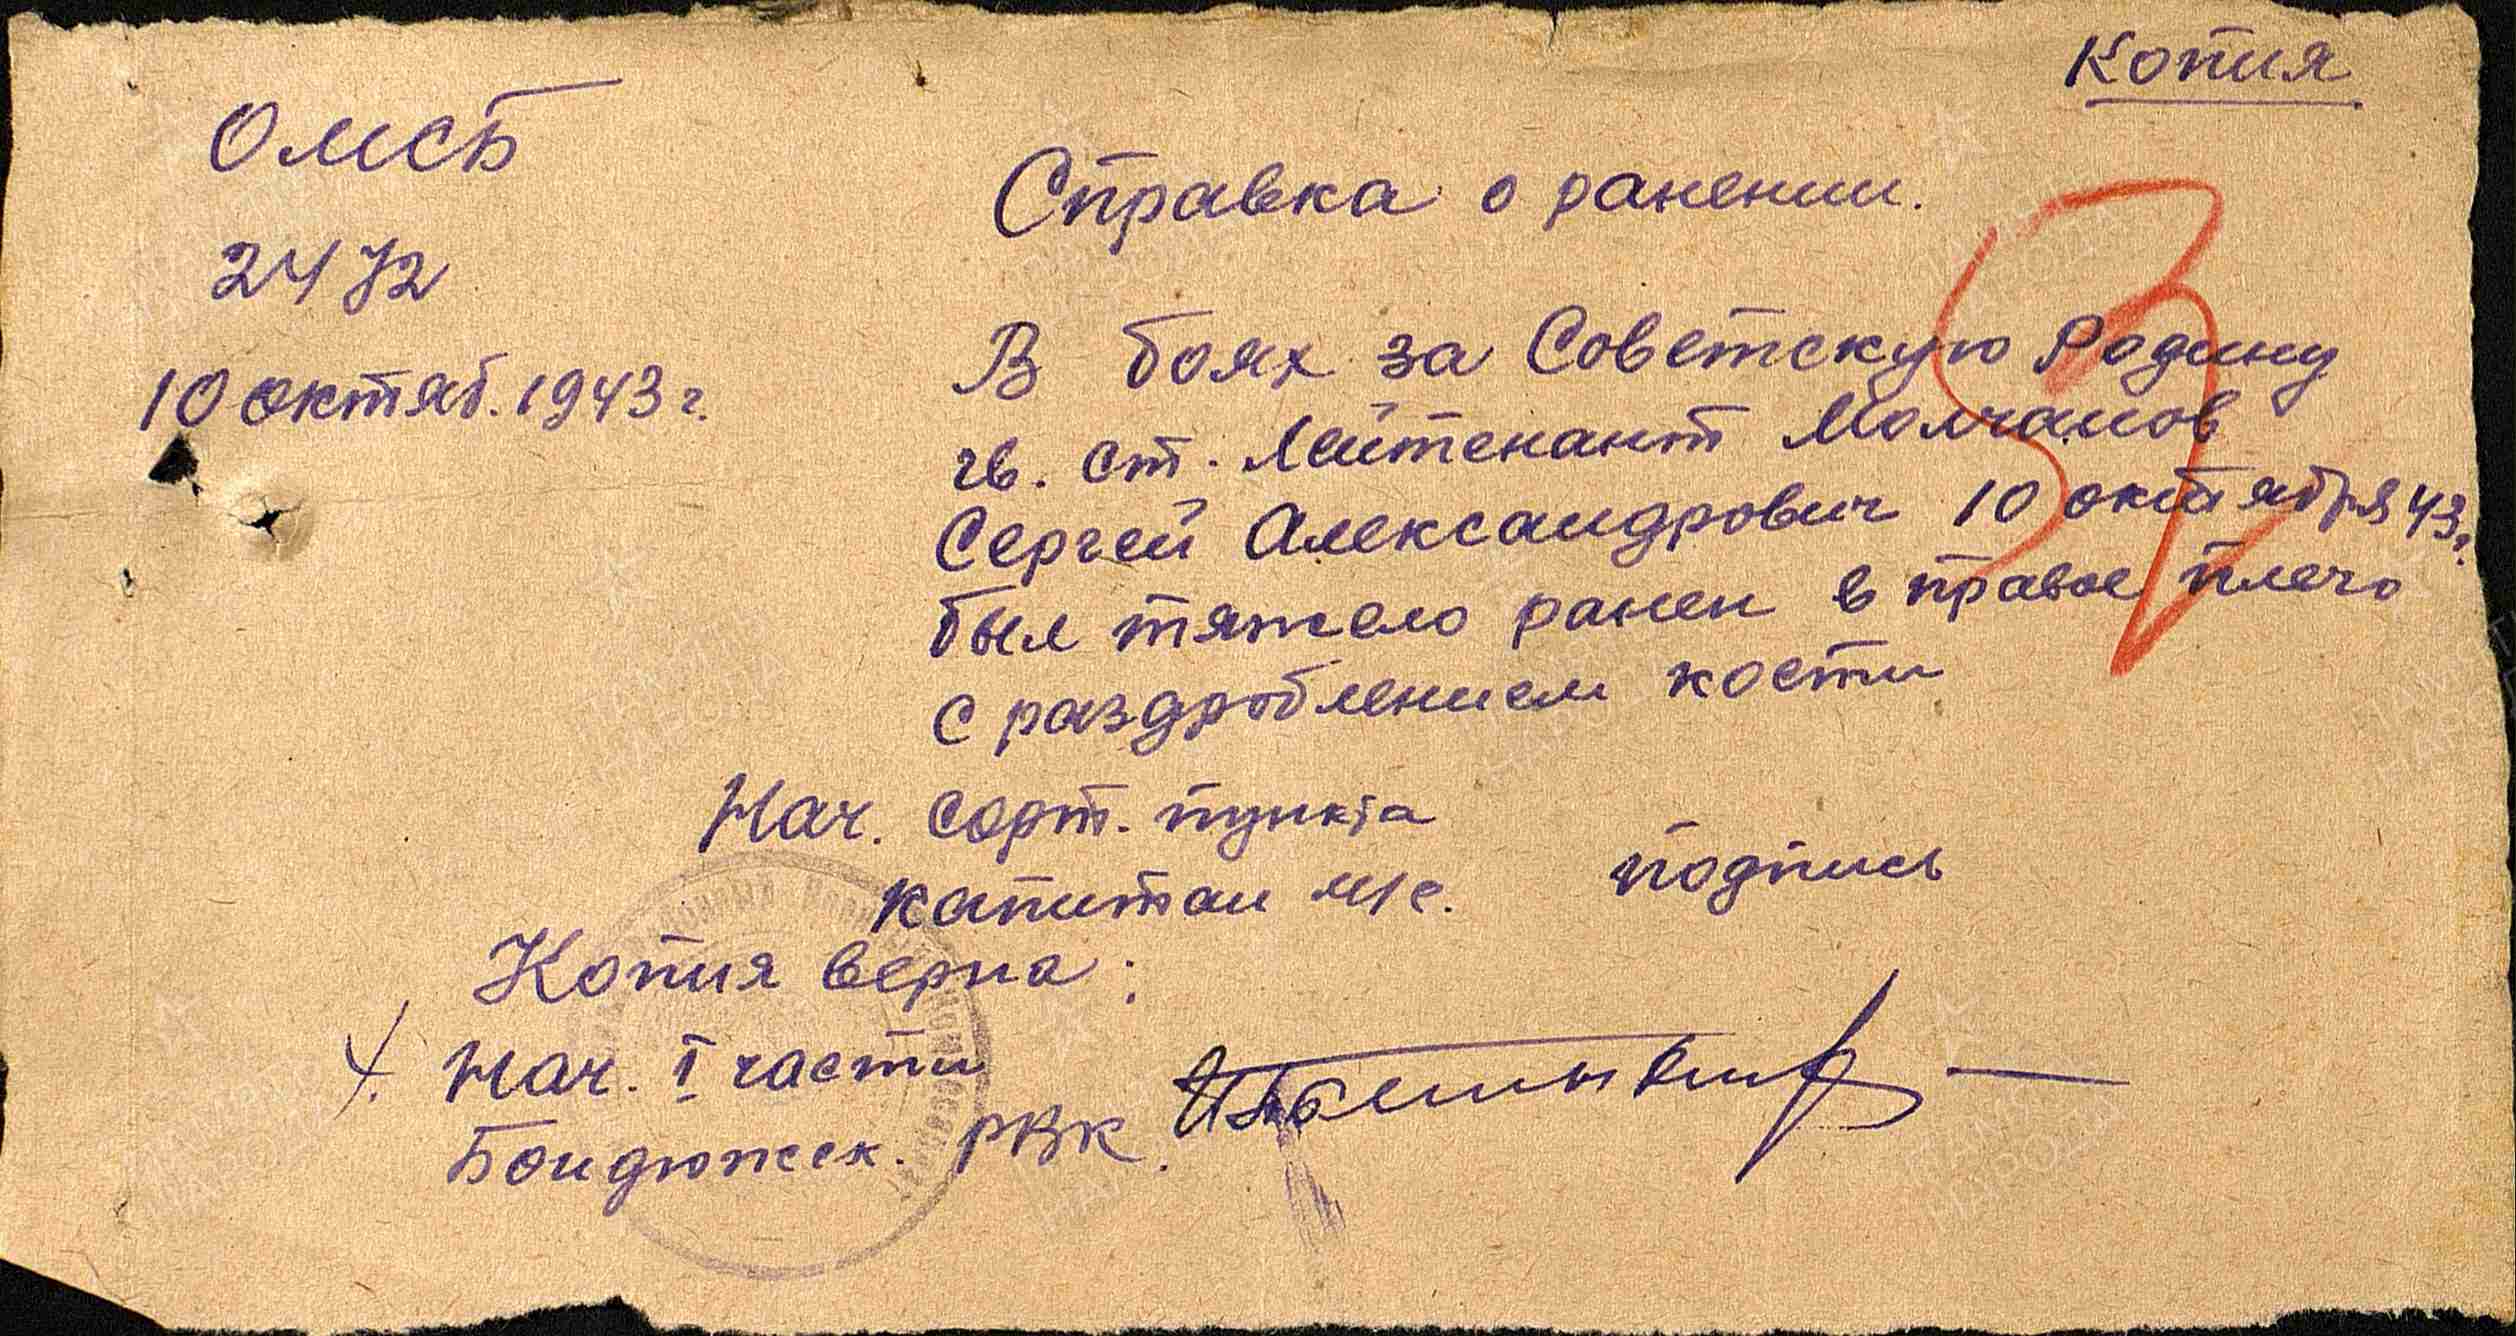 Копия
ОМСБ
2472
10 октяб. 1943 г.
Справка о ранении.
В боях за Советскую Родину
гв. ст. Лейтенант Молчанов
Сергей Александрович 10 октября 43 г.
был тяжело ранен в правое плечо
с раздроблением кости
Нач. сорт. пункта
капитан м/с. подпись
Копия верна:
Нач. I части
Бондюжск. РВК.